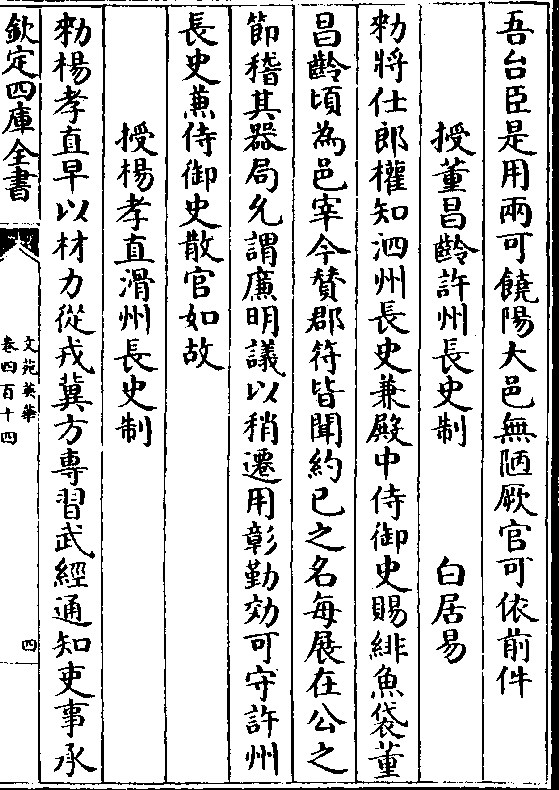 吾台臣是用兩可饒陽大邑無陋厥官可依前件
授董昌齡許州長史制　白居易
勑將仕郎權知泗州長史兼殿中侍御史賜緋魚袋董
昌齡頃為邑宰今賛郡符皆聞約已之名每展在公之
節稽其器局允謂廉明議以稍遷用彰勤効可守許州
長史兼侍御史散官如故
授楊孝直滑州長史制
勑楊孝直早以材力從戎冀方専習武經通知吏事承
欽定四庫全書
文苑英華
卷四百十四
四